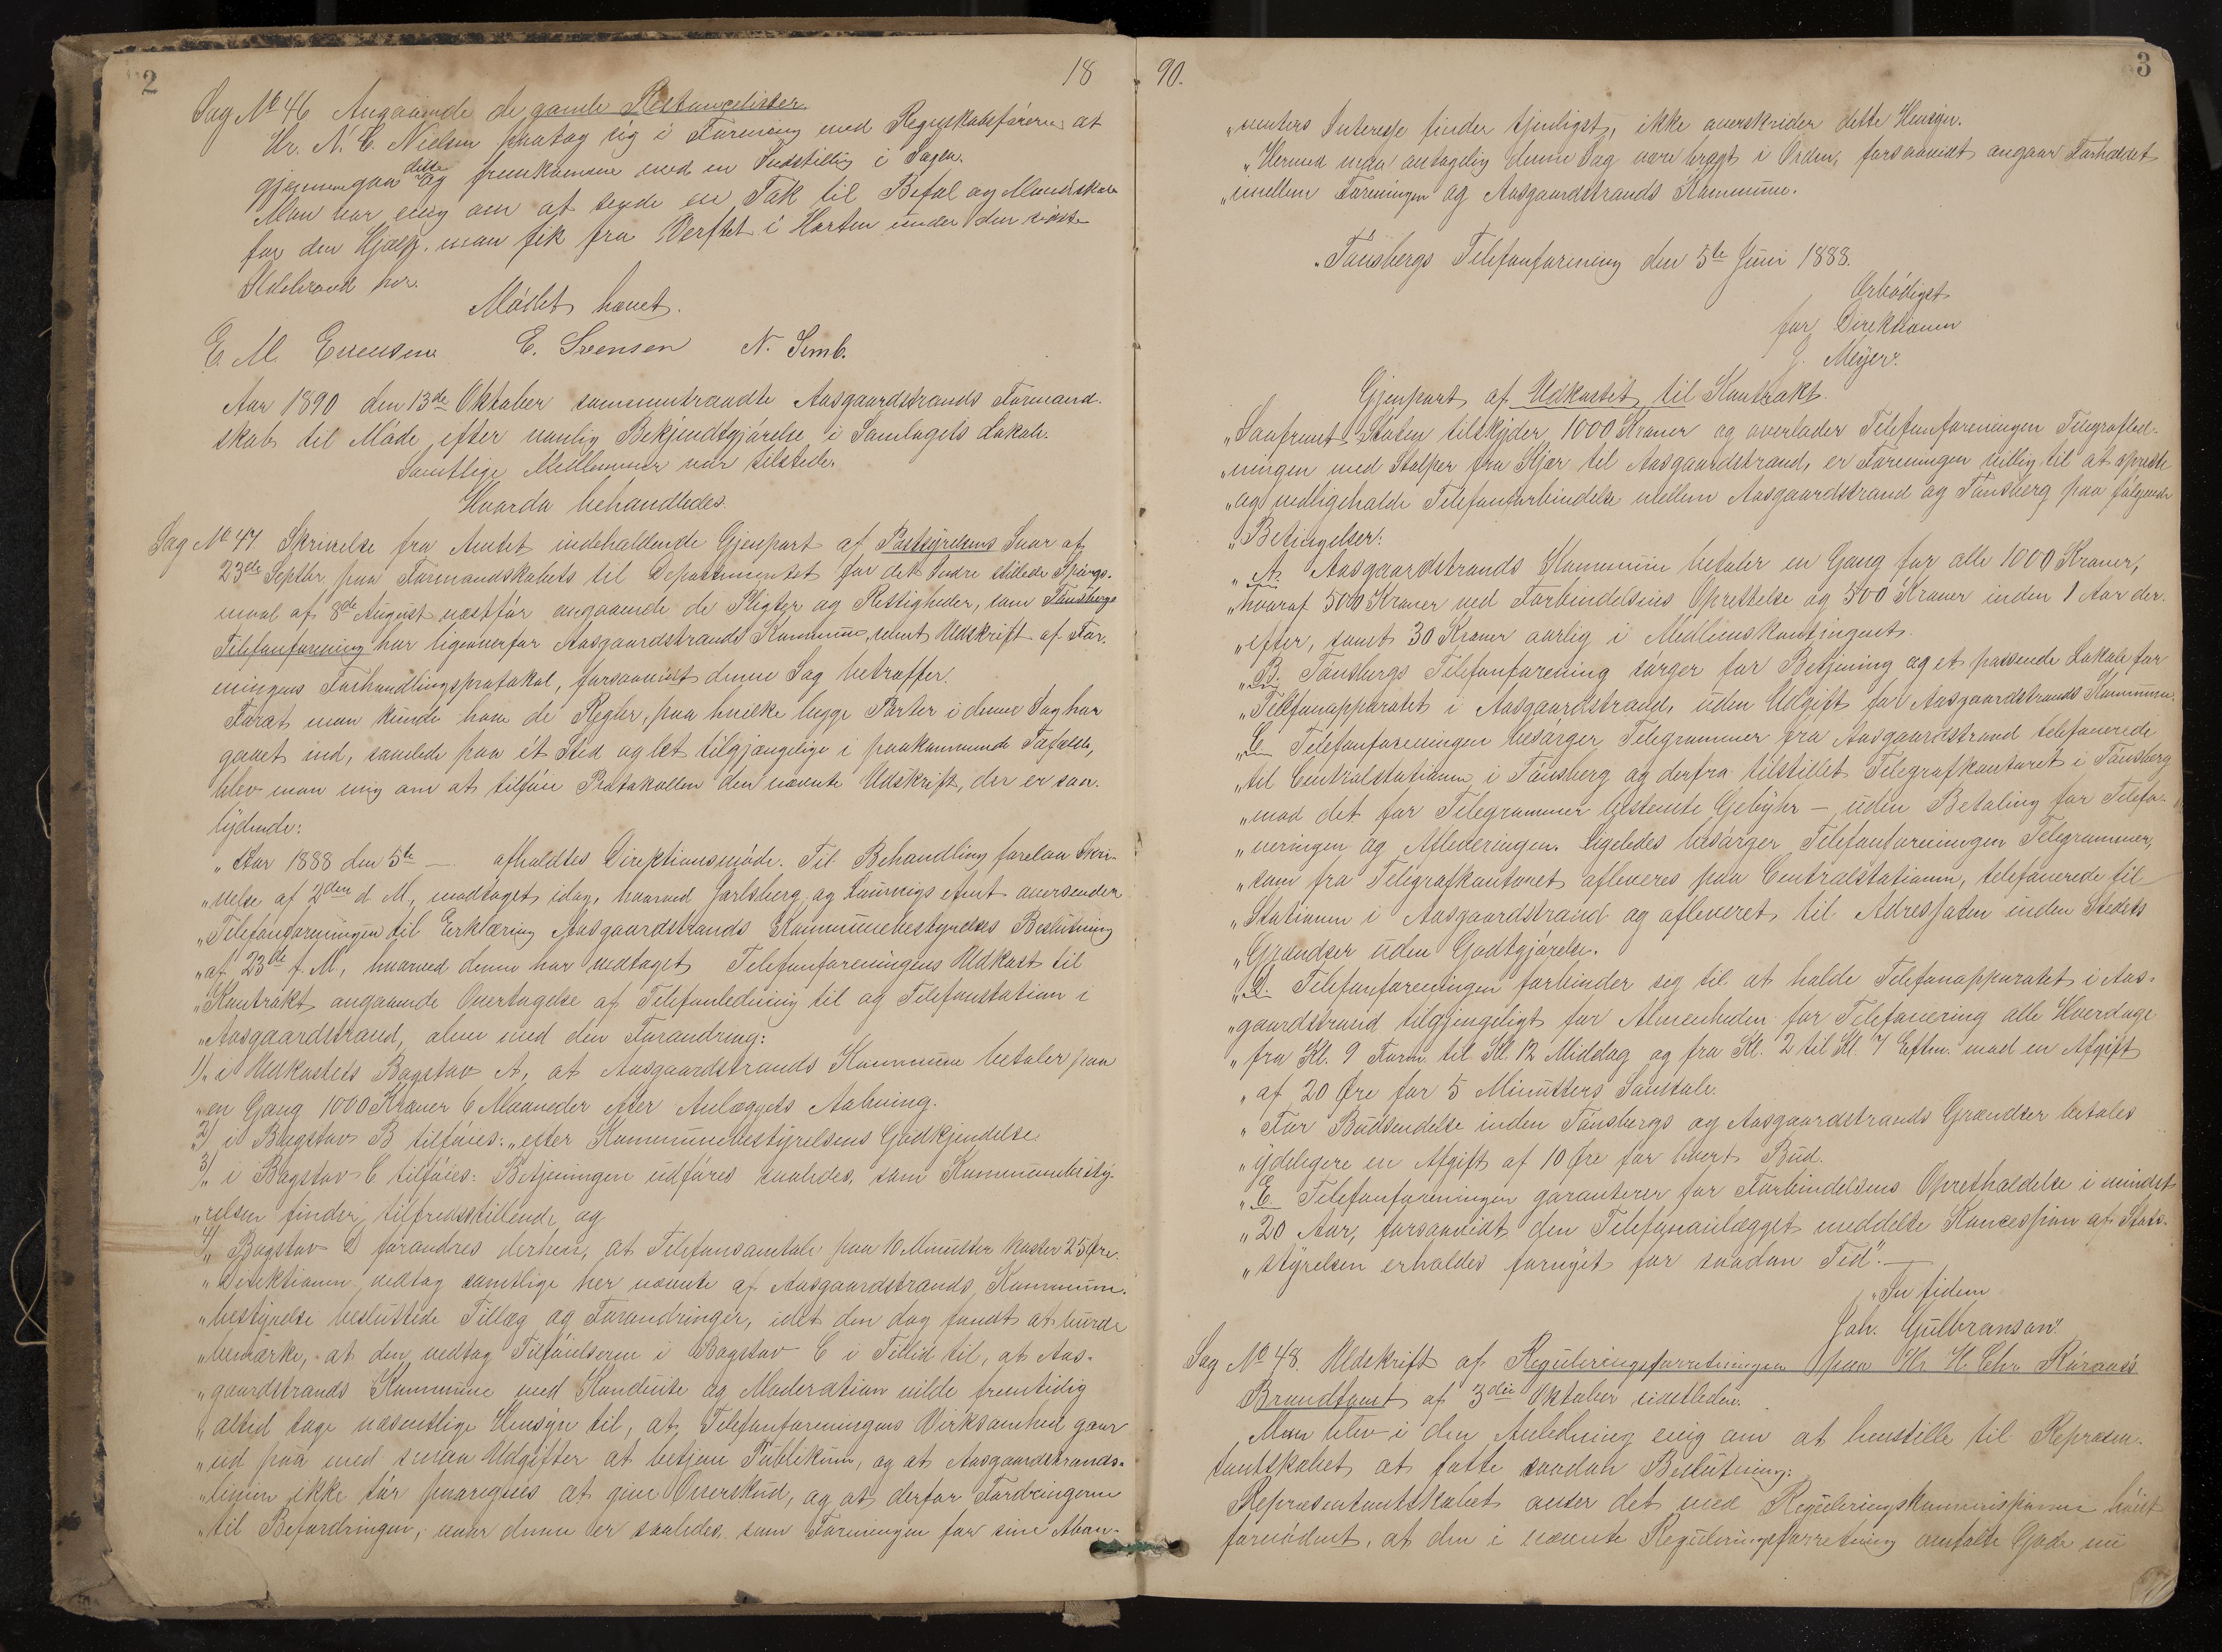 2
18
Sag No 46 Angaaende de gamle Restancelister.
Hr. N. C. Nielsen paatog sig i Forening med Regnskabsføreren at
gjennemgaa dette og fremkomme med en Indstilling i Sagen.
Man var enig om at sende en Tak til Befal og Mandskab
for den Hjælp, man fik fra Verftet i Horten under den sidste
Ildebrand her.
Mødet hævet.
E. M. Evensen E. Svensen N. Semb.
Aar 1890 den 13de Oktober sammentraadte Aasgaardstrands Formand-
skab til Møde efter vanlig Bekjendtgjørelse i Samlagets Lokale.
Samtlige Medlemmer var tilstede.
Hvorda behandledes.
Sag No 47. Skrivelse fra Amtet indeholdende Gjenpart af Poststyrelsens Svar af
23de Septbr. paa Formandskabets til Departementet for det Indre stillede Spørgs-
maal af 8de August næstfør angaaende de Pligter og Rettigheder, som Tønsbergs
Telefonforening har ligeoverfor Aasgaardstrands Kommune, samt Udskrift af For-
eningens Forhandlingsprotokol, forsaavidt denne Sag betræffer.
Forat man kunde have de Regler, paa hvilke begge Parter i denne Sag har
gaaet ind, samlede paa ét Sted og let tilgjængelige i paakommende Tilfælde,
blev man enig om at tilføre Protokollen den nævnte Udskrift, der er saa-
lydende:
„Aar 1888 den 5te — afholdtes Direktionsmøde. Til Behandling forelaa Skri-
„velse af 2den d. M., modtaget idag, hvorved Jarlsberg og Laurvigs Amt oversender
„Telefonforeningen til Erklæring Aasgaardstrands Kommunebestyrelses Beslutning
„af 23de f. M., hvorved denne har vedtaget Telefonforeningens Udkast til
„Kontrakt angaaende Overtagelse af Telefonledning til og Telefonstation i
„Aasgaardstrand, alene med den Forandring:
1)„ i Udkastets Bogstav A, at Aasgaardstrands Kommune betaler paa
„en Gang 1000 Kroner 6 Maaneder efter Anlæggets Aabning.
2)„ i Bogstav B tilføies: „efter Kommunebestyrelsens Godkjendelse.
3)„ i Bogstav C tilføies: Betjeningen udføres saaledes, som Kommunebesty-
„relsen finder tilfredsstillende, og
4)„ Bogstav D forandres derhen, at Telefonsamtale paa 10 Minutter koster 25 Øre.
„Direktionen vedtog samtlige her nævnte af Aasgaardstrands Kommune-
„bestyrelse besluttede Tillæg og Forandringer, idet den dog fandt at burde
„bemærke, at den vedtog Tilføielserne i Bogstav C i Tillid til, at Aas-
„gaardstrands Kommune med Konduite og Moderation vilde fremtidig
„altid tage væsentlige Hensyn til, at Telefonforeningens Virksomhed gaar
„ud paa med smaa Udgifter at betjene Publikum, og at Aasgaardstrands-
„linjen ikke tør paaregnes at give Overskud, og at derfor Fordringerne
„til Befordringen, naar denne er saaledes som Foreningen for sine Abon-
90.
3
„nenters Interesse finder tjenligst, ikke overskrider dette Hensyn.
„Hermed maa antagelig denne Sag være bragt i Orden, forsaavidt angaar Forholdet
„imellem Foreningen og Aasgaardstrands Kommune.
„Tønsbergs Telefonforening den 5te Juni 1888.
Ærbødigst
for Direktionen
J. Meyer.
Gjenpart af Udkastet til Kontrakt.
„Saafremt Staten tilskyder 1000 Kroner og overlader Telefonforeningen Telegrafled-
„ningen med Stolper fra Kjær til Aasgaardstrand, er Foreningen villig til at oprette
„og vedligeholde Telefonforbindelse mellem Aasgaardstrand og Tønsberg paa følgende
„Betingelser:
„A. Aasgaardstrands Kommune betaler en Gang for alle 1000 Kroner,
„hvoraf 500 Kroner ved Forbindelsens Oprettelse og 500 Kroner inden 1 Aar der-
„efter, samt 30 Kroner aarlig i Medlemskontingent.
„B. Tønsbergs Telefonforening sørger for Betjening og et passende Lokale for
„Telefonapparatet i Aasgaardstrand, uden Udgift for Aasgaardstrands Kommune.
„C. Telefonforeningen besørger Telegrammer fra Aasgaardstrand telefonerede
„til Centralstationen i Tønsberg og derfra tilstillet Telegrafkontoret i Tønsberg
„mod det for Telegrammer bestemte Gebyhr – uden Betaling for Telefo-
„neringen og Afleveringen. Ligeledes besørger Telefonforeningen Telegrammer,
„som fra Telegrafkontoret afleveres paa Centralstationen, telefonerede til
„Stationen i Aasgaardstrand og afleveret til Adressaten inden Stedets
„Grændser uden Godtgjørelse.
„D. Telefonforeningen forbinder sig til at holde Telefonapparatet i Aas-
„gaardstrand tilgjengeligt for Almenheden for Telefonering alle Hverdage
„fra Kl. 9 Form. til Kl. 12 Middag og fra Kl. 2 til Kl. 7 Efterm. mod en Afgift
„af 20 Øre for 5 Minutters Samtale.
„For Budsendelse inden Tønsbergs og Aasgaardstrands Grændser betales
„ydeligere en Afgift af 10 Øre for hvert Bud.
„E. Telefonforeningen garanterer for Forbindelsens Opretholdelse i mindst
„20 Aar, forsaavidt den Telefonanlægget meddelte Koncession af Stats-
„styrelsen erholdes fornyet for saadan Tid”. —
„In fidem
Joh. Gulbranson”.
Sag No 48. Udskrift af Reguleringsforretningen paa Hr. H. Chr.
Brandtomt af 3die Oktober sidstleden.
Man blev i den Anledning enig om at henstille til Repræsen-
tantskabet at fatte saadan Beslutning:
Repræsentantskabet anser det med Reguleringskommissionen høist
fornødent, at den i nævnte Reguleringsforretning omtalte Gade nu